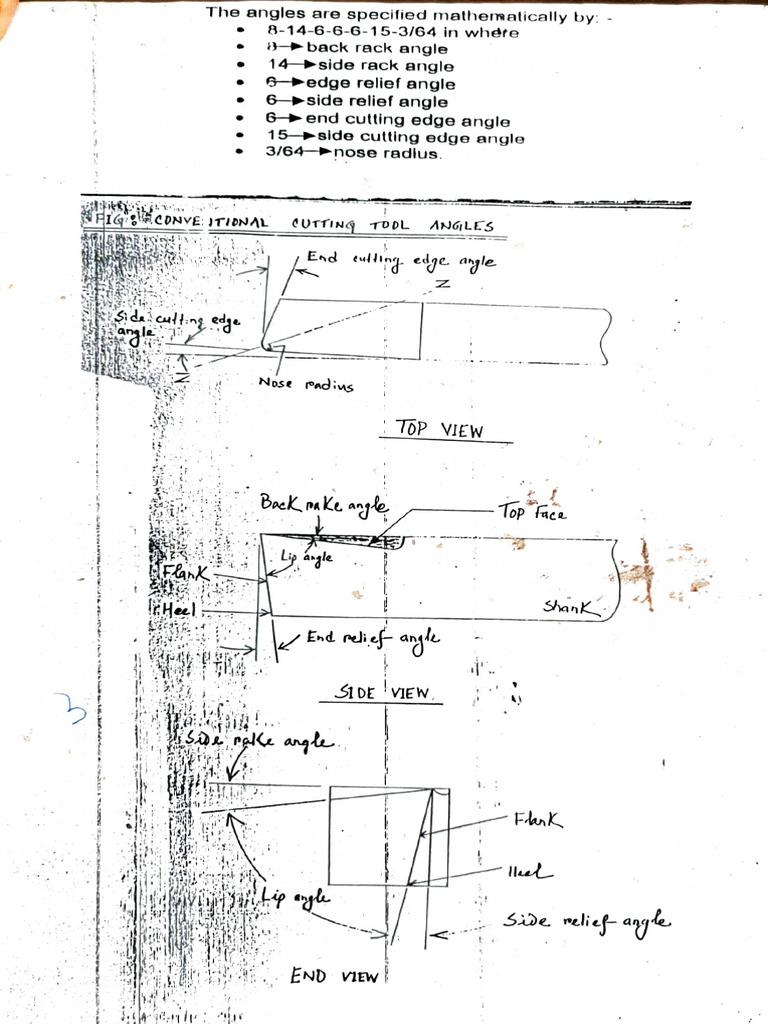 The angles are specified mathematically by: -
• 8-14-6-6-6-15-3/64 in where
• 8→back rack angle
• 14→side rack angle
• 6→edge relief angle
• 6→side relief angle
• 6→end cutting edge angle
• 15→side cutting edge angle
• 3/64→nose radius.
FIG: CONVETIONAL CUTTING TOOL ANGLES
End cutting edge angle
Z
Side cutting edge
angle
Z
Nose radius
TOP VIEW
Back rake angle
Top Face
Lip angle
Flank
Heel
Shank
End relief angle
SIDE VIEW
3
Side rake angle
Flank
Heel
Lip angle
Side relief angle
END VIEW